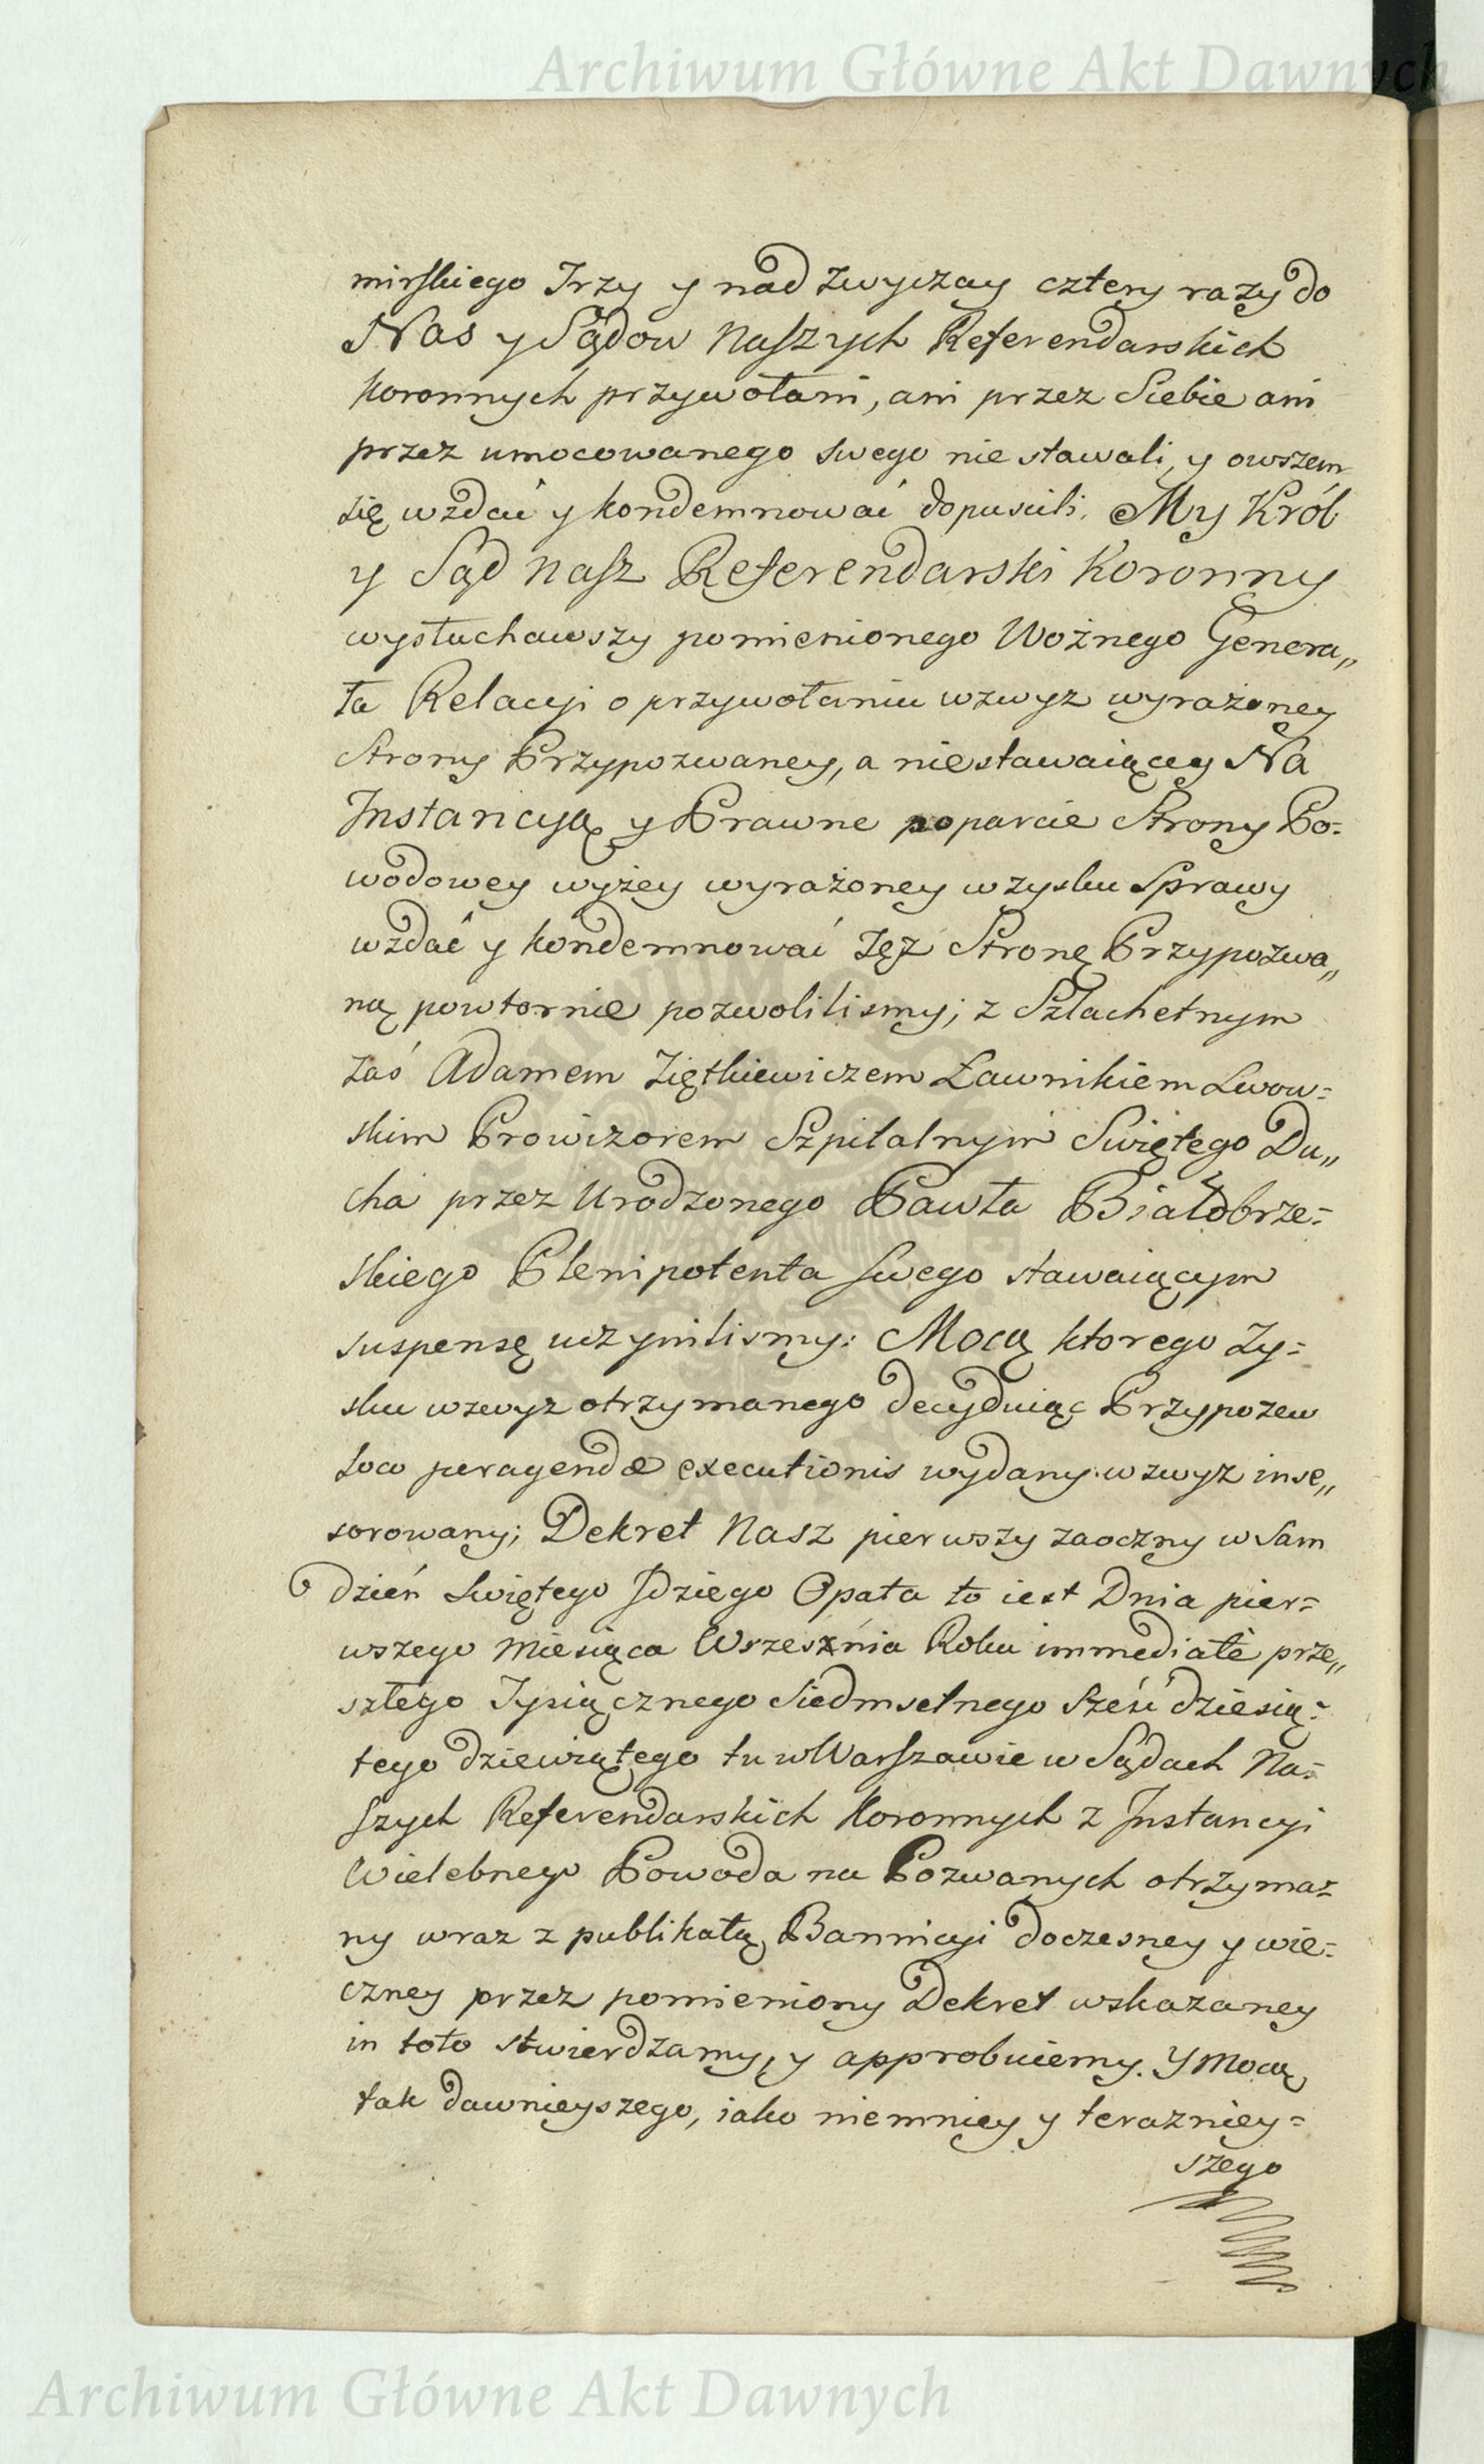 Archiwum Główne Akt Dawnych
mirskiego Trzy y nad zwyczay cztery razy do
Nas y Sądow Naszych Referendarskich
Koronnych przywołani, ani przez Siebie ani
przez umocowanego swego nie stawali, y owszem
się wzdać y kondemnować dopuścili. My Król
y Sąd Nasz Referendarski Koronny
wysłuchawszy pomienionego Woźnego Genera„
ła Relacyi o przywołaniu wzwyz wyrażoney
Strony Przypozwaney, a niestawaiącey Na
Instancyą y Prawne poparcie Strony Po=
wodowey wyżey wyrażoney w zysku Sprawy
wzdać y kondemnować Tęż Stronę Przypozwa„
ną powtornie pozwolilismy; z Szlachetnym
zaś Adamem Ziętkiewiczem Ławnikiem Lwow=
skim Prowizorem Szpitalnym Swiętego Du„
cha przez Urodzonego Pawła Białobrze=
skiego Plenipotenta swego stawaiącym
suspensę uczynilismy: Mocą ktorego Zy=
sku wzwyz otrzymanego decyduiąc Przypozew
Loco peragendæ executionis wydany wzwyz inse„
rowany; Dekret Nasz pierwszy zaoczny w Sam
dzień Swiętego Jdziego Opata to iest Dnia pier=
wszego Miesiąca Wrzesznia Roku immediatè prze„
szłego Tysiącznego Siedmsetnego Sześćdziesią=
tego dziewiątego tu w Warszawie w Sądach Na=
szych Referendarskich Koronnych z Instancyi
Wielebnego Powoda na Pozwanych otrzyma=
ny wraz z publikatą Bannicyi doczesney y wie=
czney przez pomieniony Dekret wskazaney
in toto stwierdzamy, y approbuiemy. Y Mocą
tak dawnieyszego, iako niemniey y terazniey=
szego
Archiwum Główne Akt Dawnych